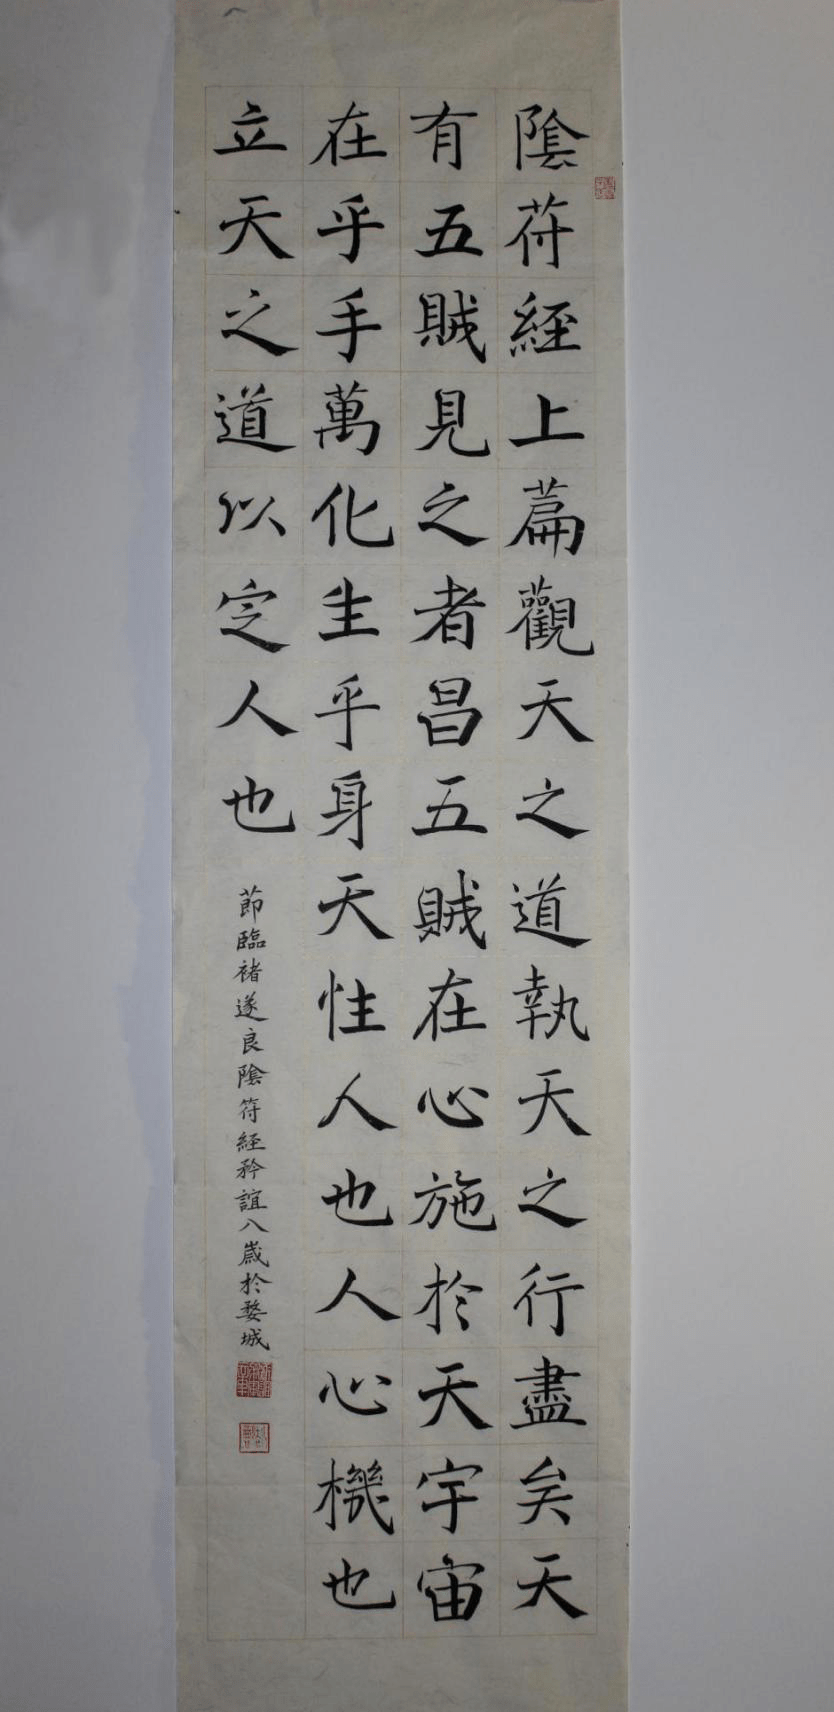 陰符經上篇觀天之道執天之行盡矣天
有五賊見之者昌五賊在心施於天宇宙
在乎手萬化生乎身天性人也人心機也
立天之道以定人也
節臨褚遂良陰符經矜誼八歲於婺城